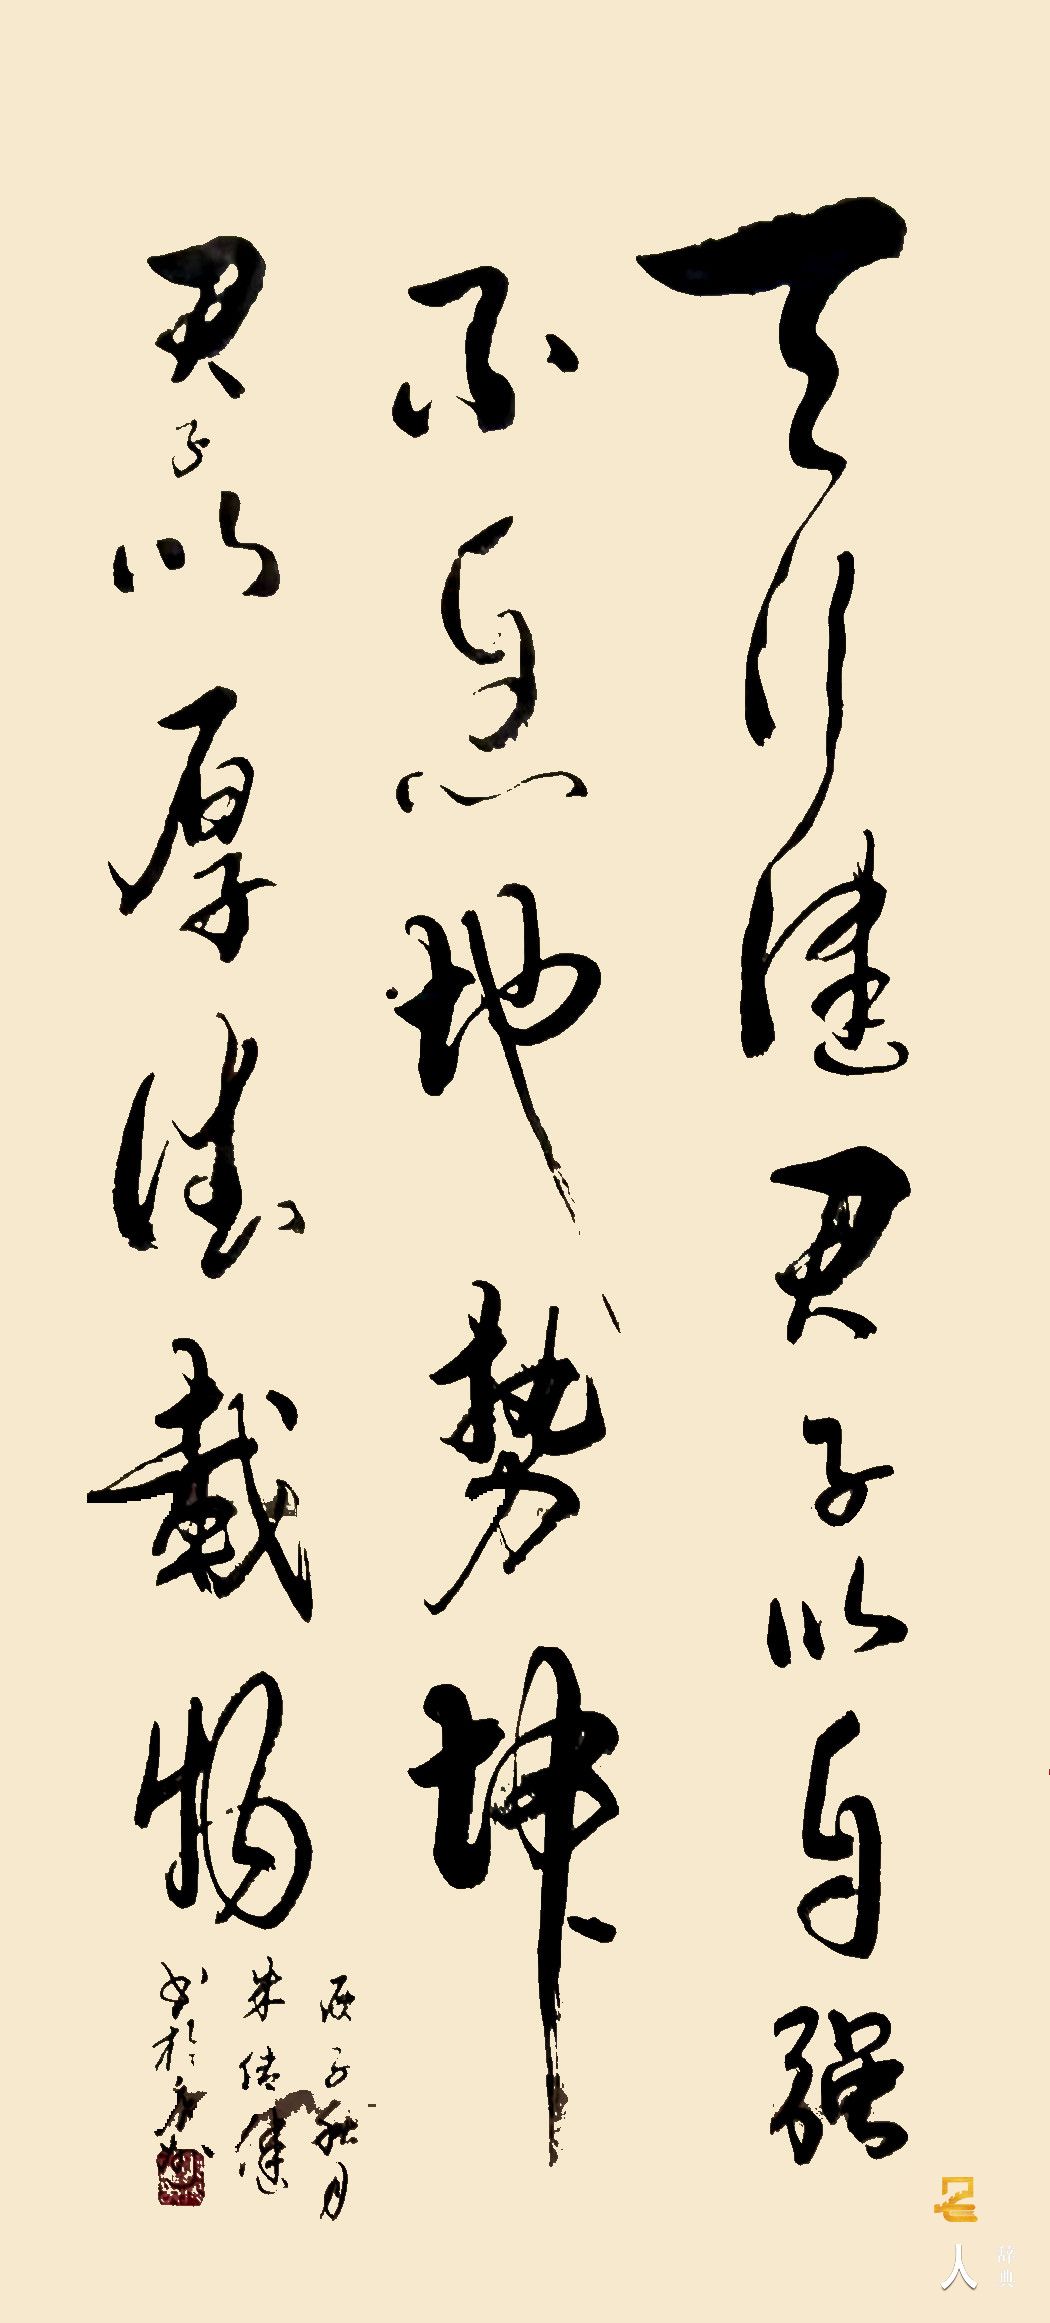 天行健君子以自强
不息地势坤
君子以厚德载物
庚子秋月
朱
书於
名人
辞典